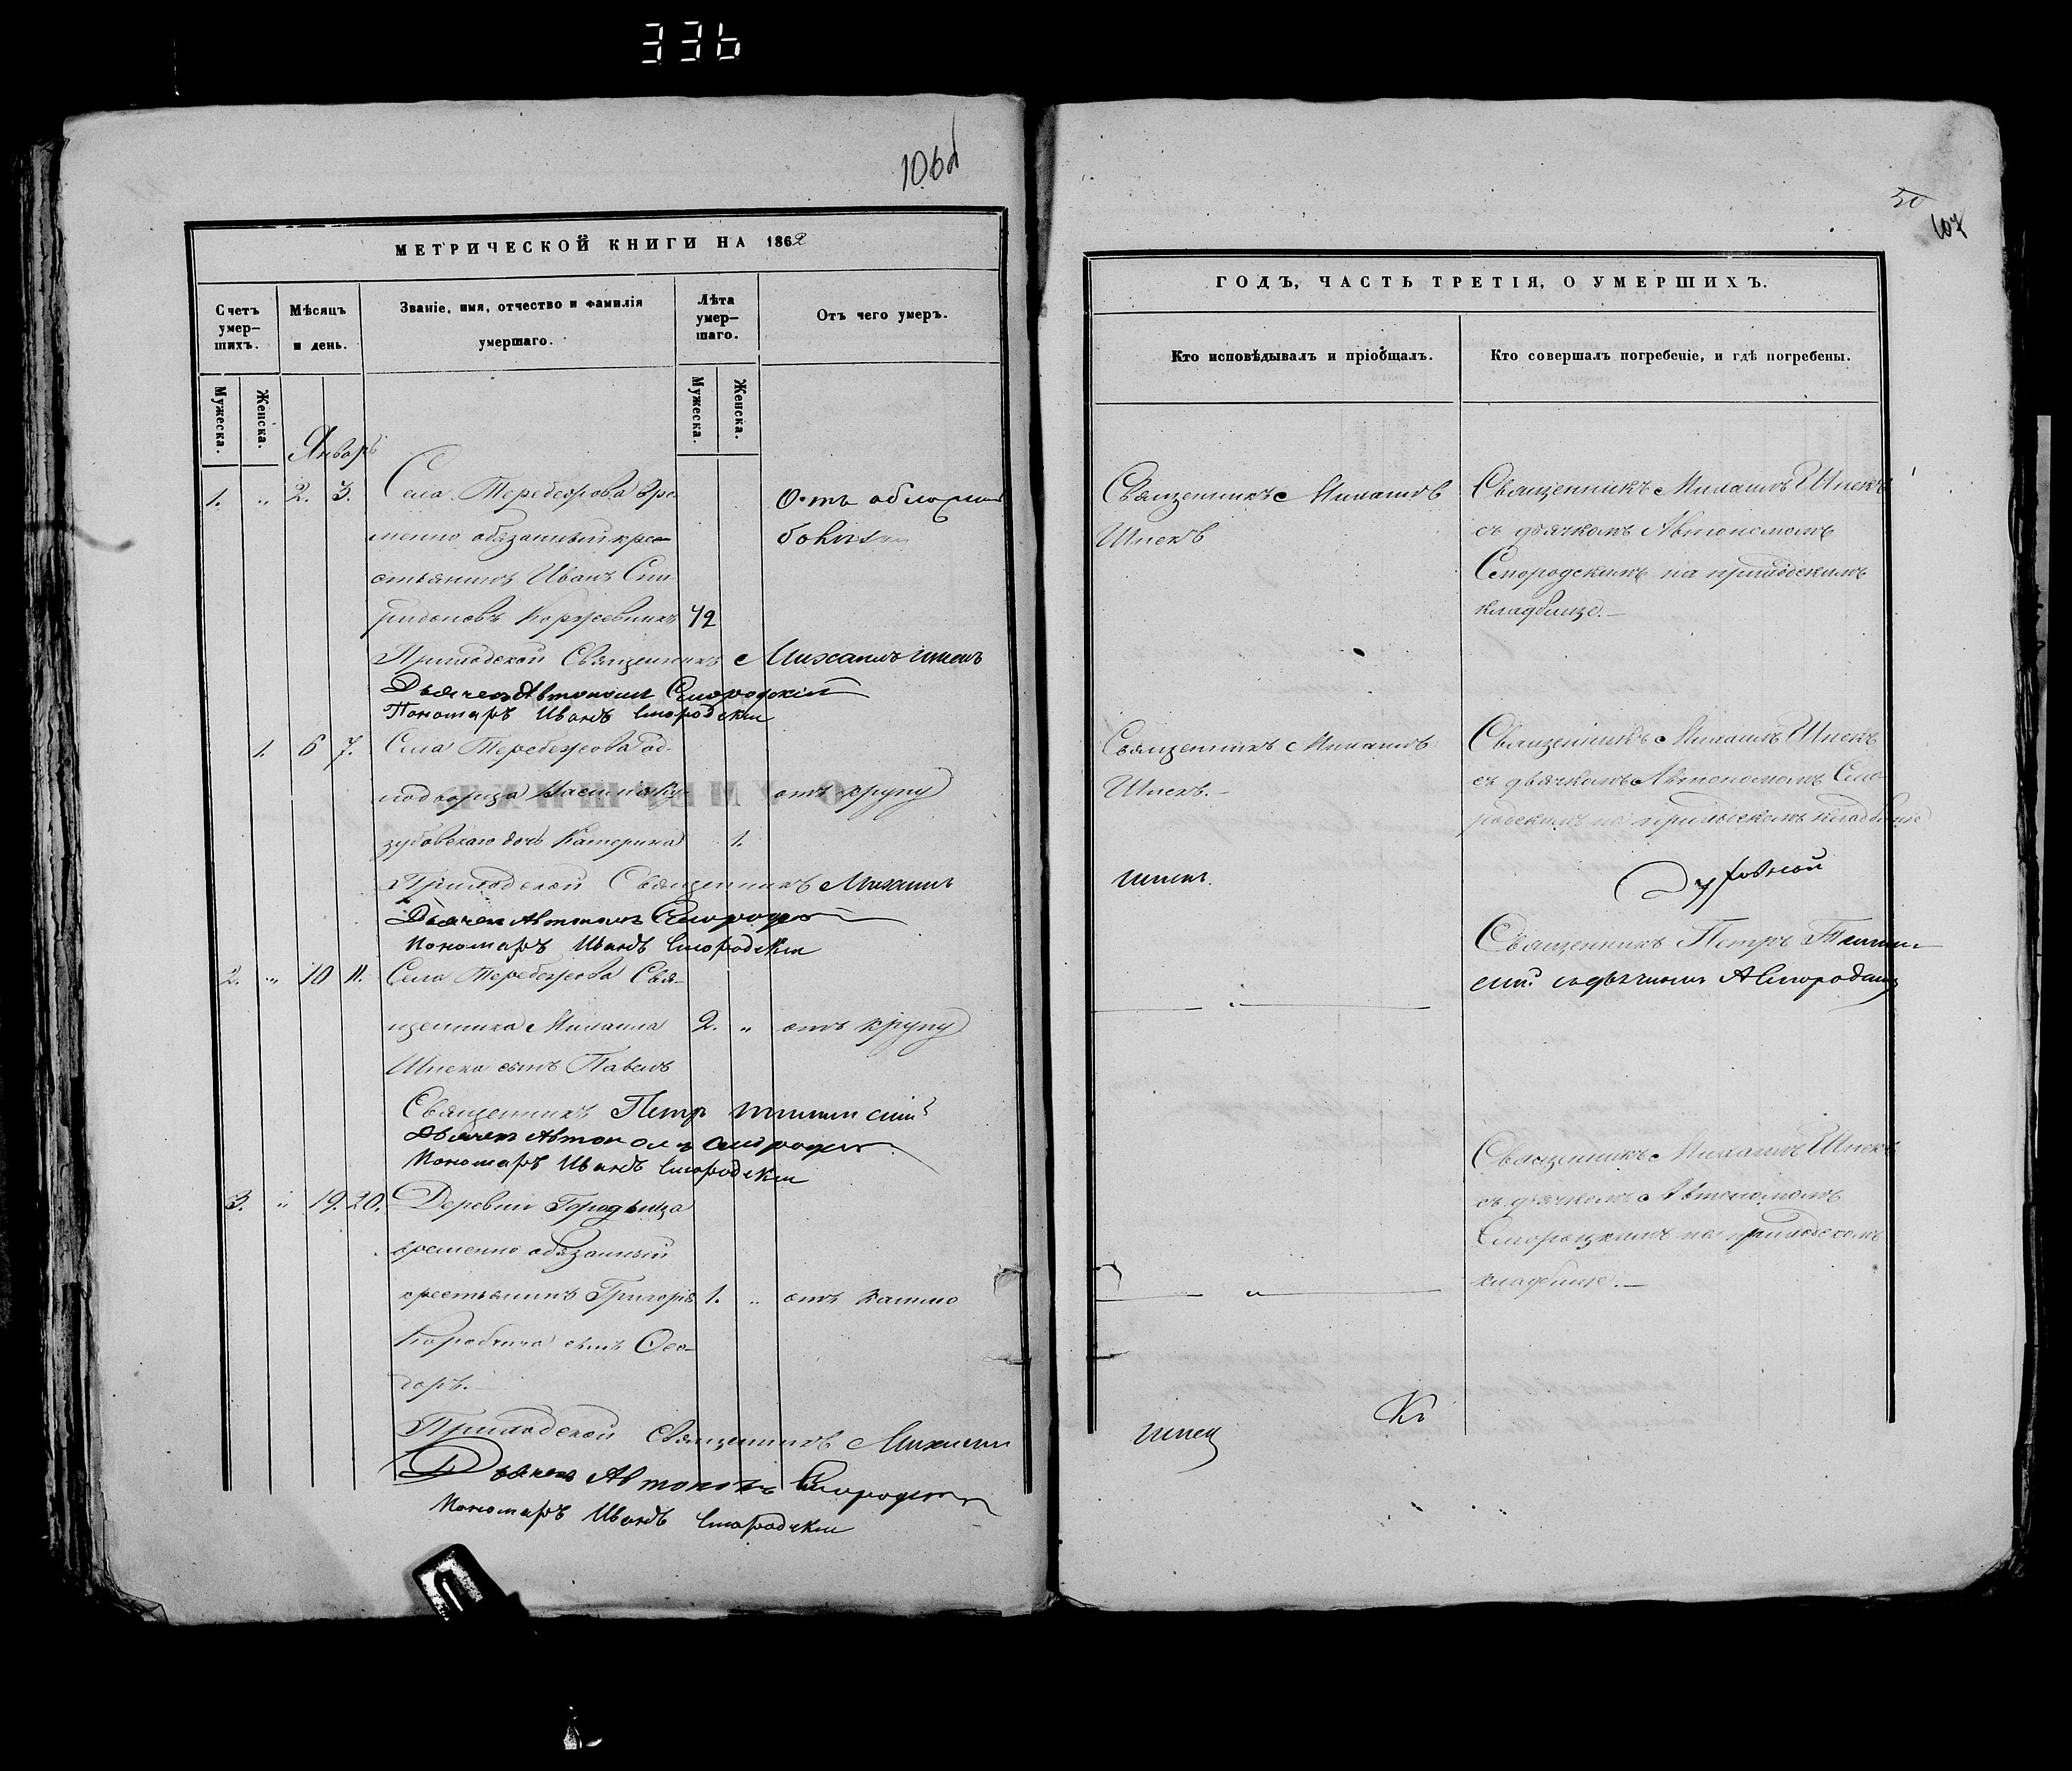 336
106об
МЕТРИЧЕСКОЙ КНИГИ НА 1862
Счетъ умер-шихъ.
Мѣсяцъ и день.
Званіе, имя, отчество и фамилія умершаго.
Лѣта умер-шаго.
Отъ чего умеръ.
Мужеска.
Женска.
Мужеска.
Женска.
Январь
1. „ 2. 3. Села Теребежова вре-
менно обязанный кре-
стьянинъ Иванъ Спи-
ридоновъ Коржевникъ 72
Отъ
Приходской Священникъ Михаилъ Шпекъ
Дьячекъ Автономъ Смородскій
Пономарь Иванъ Смородскій
1. 6 7. Села Теребежова од-
нодворца
зубовскаго дочь Катерина 1.
отъ крупу
Приходской Священникъ Михаилъ
Дьячекъ Автономъ Смородскій
Пономарь Иванъ Смородскій
2. „ 10 11. Села Теребежова Свя-
щенника Михаила 2. „ отъ крупу
Шпека сынъ Павелъ
Священникъ Петръ
Дьячекъ Автономъ Смородскій
Пономарь Иванъ Смородскій
3. „ 19. 20. Деревни Городыща
временно обязанный
крестьянинъ Григорія 1. „ отъ кашлю
сынъ Ѳео-
доръ.
Приходской Священникъ Михаилъ
Дьячекъ Автономъ Смородскій
Пономарь Иванъ Смородскій
50
107
ГОДЪ, ЧАСТЬ ТРЕТІЯ, О УМЕРШИХЪ.
Кто исповѣдывалъ и пріобщалъ.
Кто совершалъ погребеніе, и гдѣ погребены.
Священникъ Михаилъ
Шпекъ
Священникъ Михаилъ Шпекъ
съ дьячкомъ Автономомъ
Смородскимъ на приходскимъ
кладбище.—
Священникъ Михаилъ
Шпекъ.
Священникъ Михаилъ Шпекъ
съ дьячкомъ Автономомъ Смо-
родскимъ на приходскомъ кладбище
Шпекъ.
Священникъ Петръ
Священникъ Михаилъ Шпекъ
съ дьячкомъ Автономомъ
Смородскимъ на приходскомъ
кладбище.—
Шпекъ